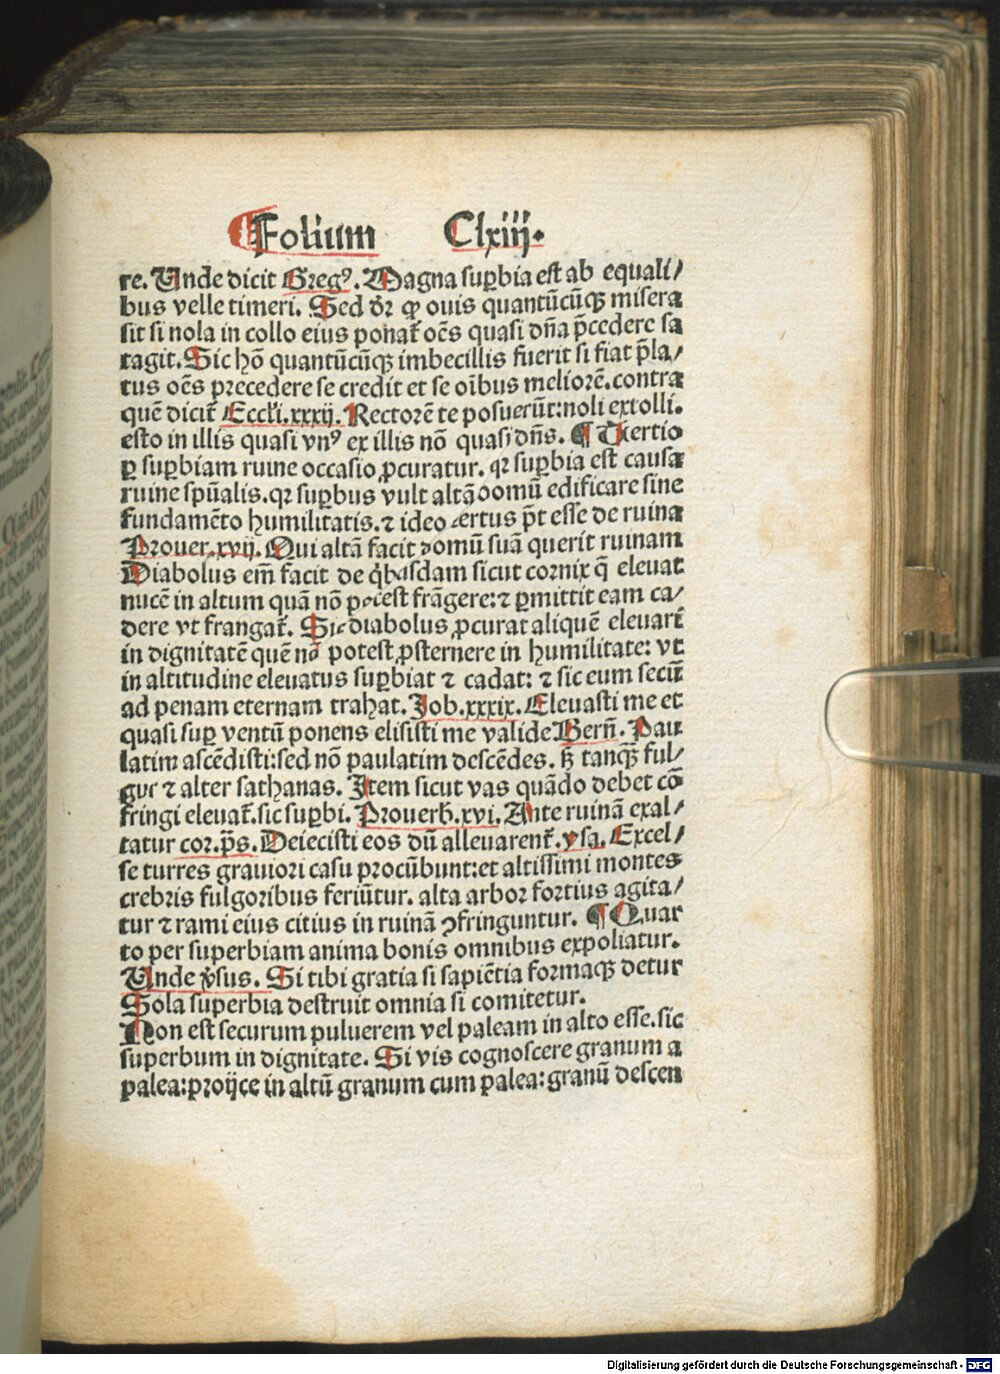 Folium Clxiij.
re. Unde dicit Gregꝰ. Magna suꝑbia est ab equali/
bus velle timeri. Sed dr̄ ꝙ ouis quantūcūqꝫ misera
sit si nola in collo eius ponat̄ oēs quasi dn̄a p̄cedere sa
tagit. Sic hō quantūcūqꝫ imbecillis fuerit si fiat p̄la/
tus oēs precedere se credit et se oībus meliorē. contra
quē dicit̄ Eccl'i. xxxij. Rectorē te posuerūt: noli extolli.
esto in illis quasi vnꝰ ex illis nō quasi dn̄s. ¶ Tertio
ꝑ suꝑbiam ruine occasio ꝓcuratur. qꝛ suꝑbia est causa
ruine spūalis. qꝛ suꝑbus vult altā domū edificare sine
fundamēto humilitatis. ⁊ ideo certus p̄t esse de ruina
Prouer. xvij. Qui altā facit domū suā querit ruinam
Diabolus em̄ facit de q̇busdam sicut cornix q̄ eleuat
nucē in altum quā nō potest frāgere: ⁊ ꝑmittit eam ca/
dere vt frangat̄. Sic diabolus ꝓcurat aliquē eleuari
in dignitatē quē nō potest ꝓsternere in humilitate: vt
in altitudine eleuatus suꝑbiat ⁊ cadat: ⁊ sic eum secū
ad penam eternam trahat. Job. xxxix. Eleuasti me et
quasi suꝑ ventū ponens elisisti me valide Bern̄. Pau
latim ascēdisti: sed nō paulatim descēdes. sꝫ tanqꝫ ful/
gur ⁊ alter sathanas. Item sicut vas quādo debet cō
fringi eleuat̄. sic suꝑbi. Prouerb. xvi. Ante ruinā exal/
tatur cor. p̄s. Deiecisti eos dū alleuarent̄. ysa. Excel/
se turres grauiori casu procūbunt: et altissimi montes
crebris fulgoribus feriūtur. alta arbor fortius agita/
tur ⁊ rami eius citius in ruinā ꝯfringuntur. ¶ Quar
to per superbiam anima bonis omnibus expoliatur.
Unde ṽsus. Si tibi gratia si sapiētia formaqꝫ detur
Sola superbia destruit omnia si comitetur.
Non est securum puluerem vel paleam in alto esse. sic
superbum in dignitate. Si vis cognoscere granum a
palea: proijce in altū granum cum palea: granū descen
Digitalisierung gefördert durch die Deutsche Forschungsgemeinschaft - DFG